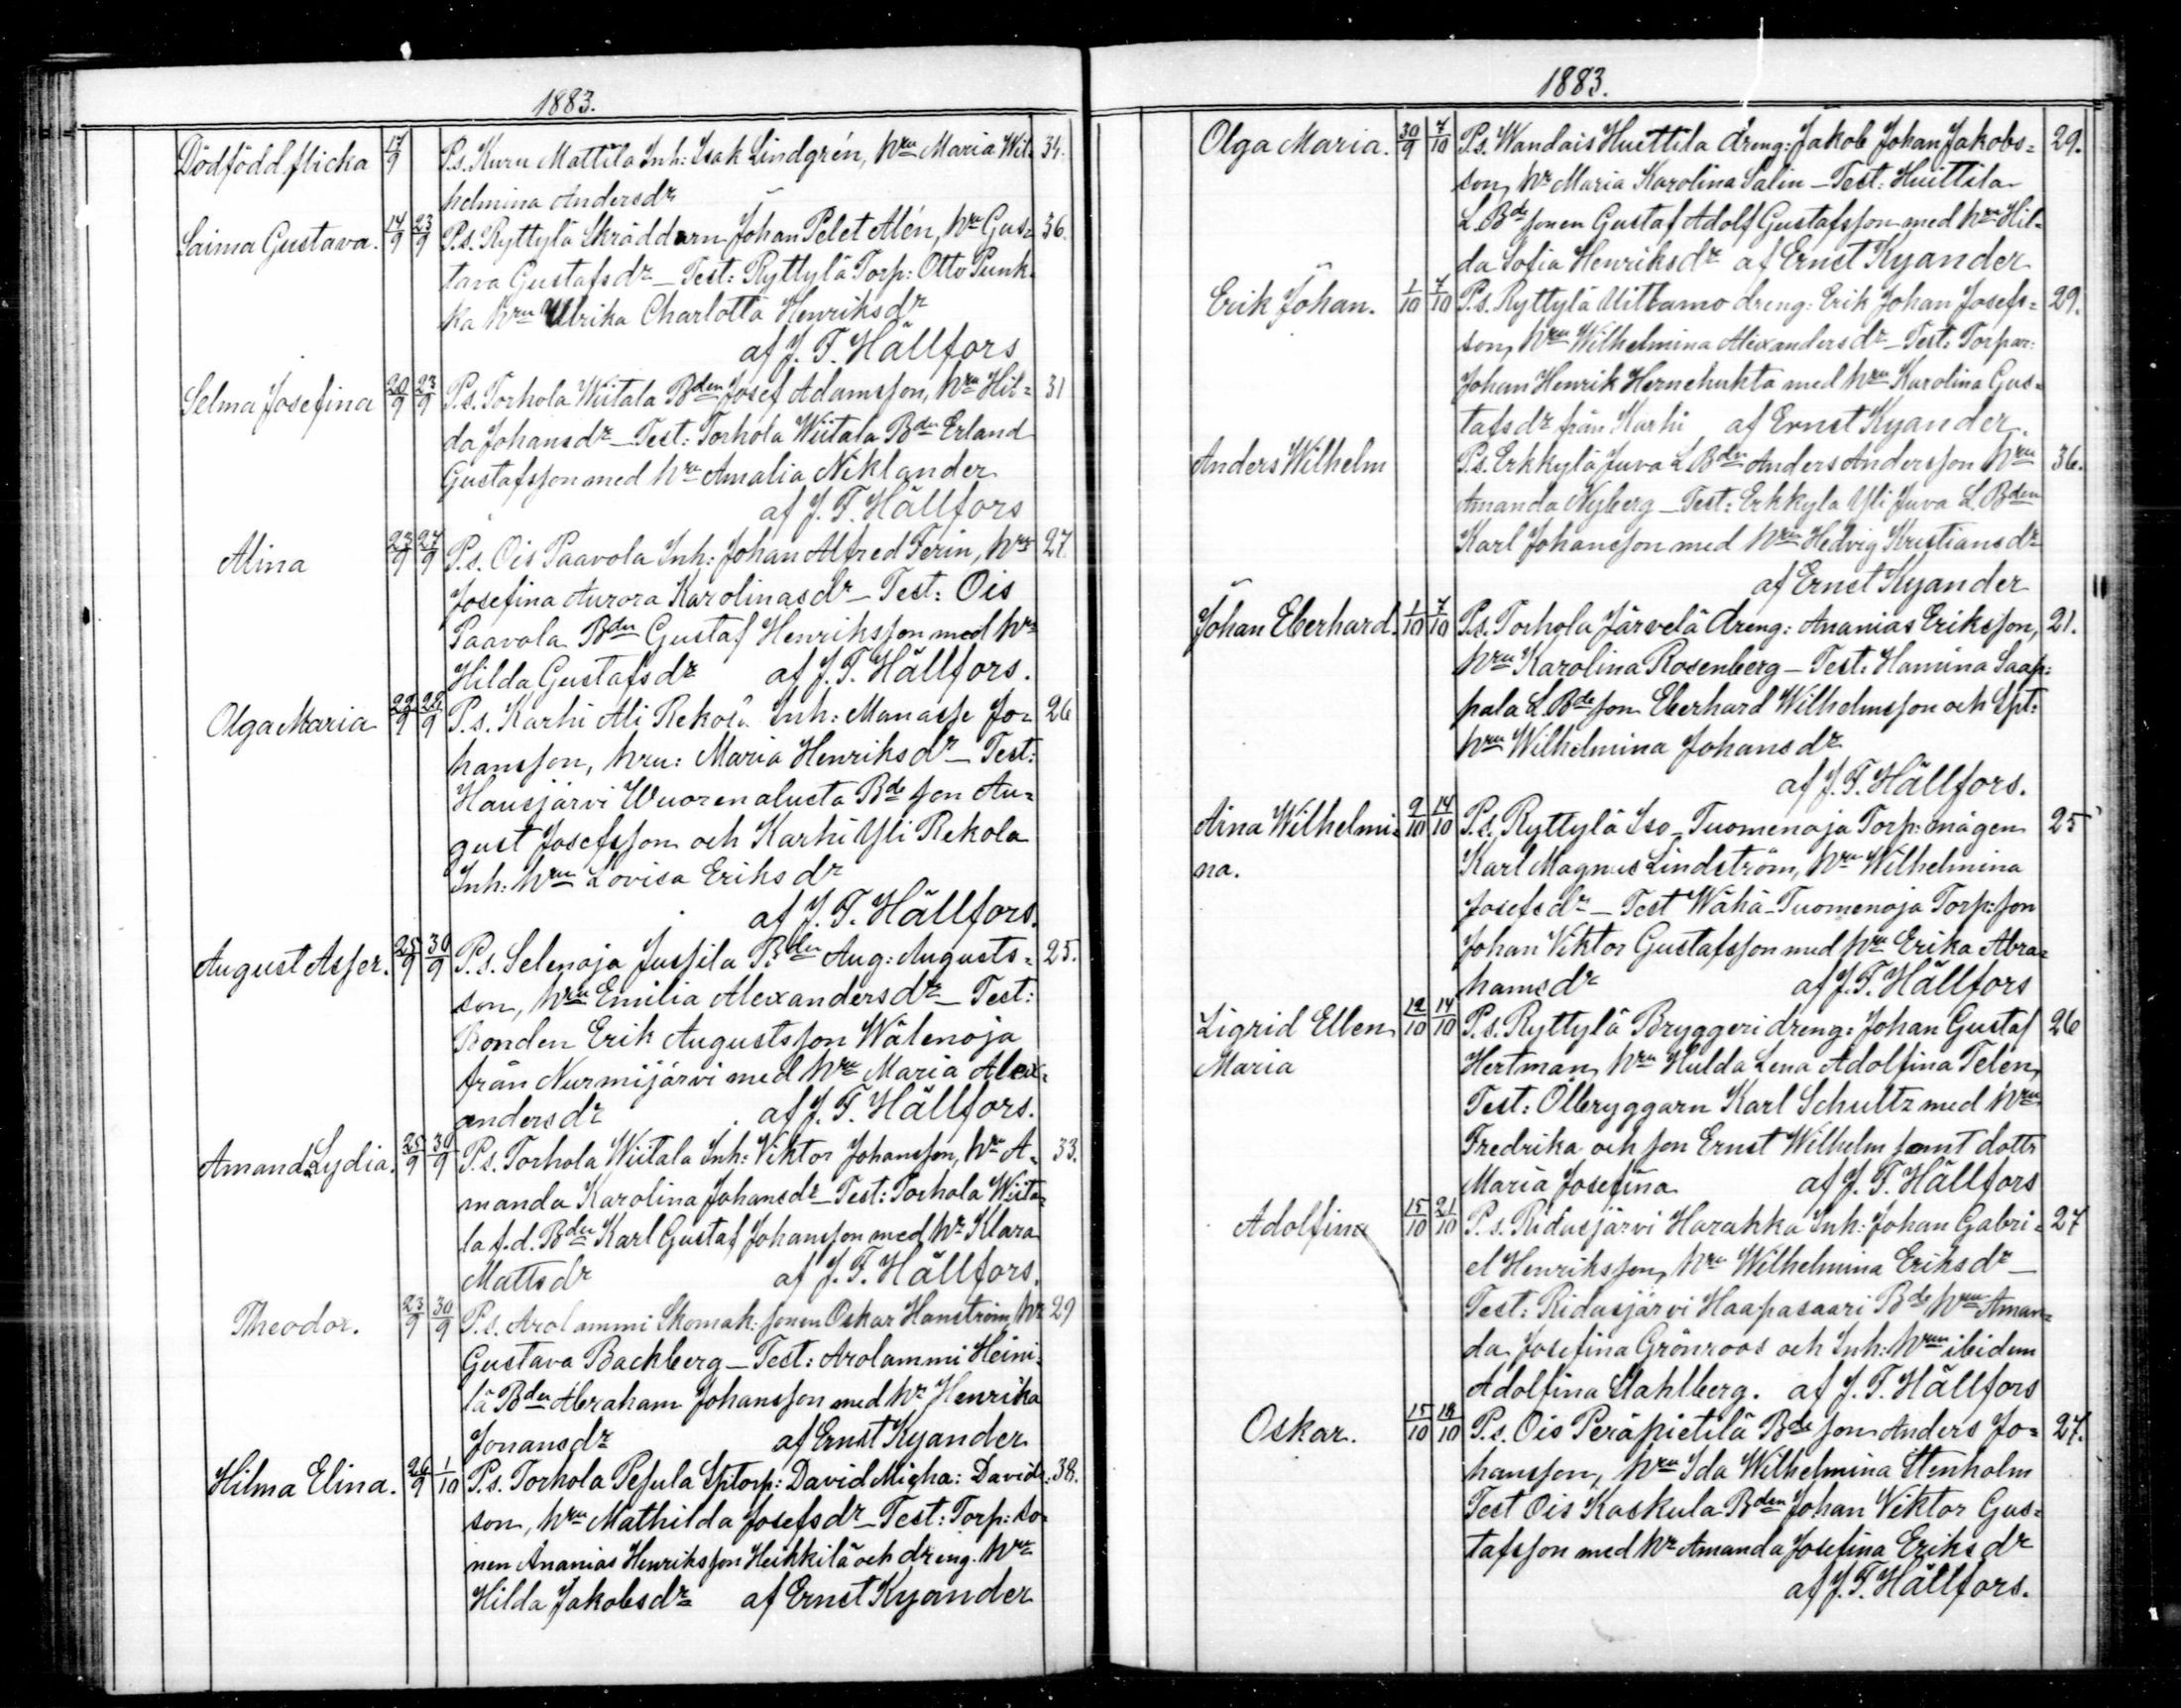 1883.
Dödfödd flicka 17/9 P.s. Kuru Mattila Inh: Isak Lindgrén, hru Maria Wil- 34.
helmina Andersdr
Saima Gustava. 14/9 23/9 P.s. Ryttylä Skräddarn Johan Pelet Alén, hru Gus- 36.
tava Gustafsdr – Test: Ryttylä Torp: Otto Punk-
ka hru Ulrika Charlotta Henriksdr
af J. F. Hällfors
Selma Josefina 20/9 23/9 P.s. Torhola Wiitala Bden Josef Adamsson, hru Hil- 31
da Johansdr – Test: Torhola Wiitala Bdn Erland
Gustafsson med hru Amalia Niklander
af J. F. Hällfors
Alina 23/9 27/9 P.s. Ois Paavola Inh: Johan Alfred Ferin, hru 27.
Josefina Aurora Karolinasdr – Test: Ois
Paavola Bdn Gustaf Henriksson med hru
Hilda Gustafsdr af J. F. Hällfors.
Olga Maria P.s. Karhi Ali Rekola Inh: Manasse Jo- 26
hansson, hru: Maria Henriksdr – Test:
Hausjärvi Wuorenalusta Bde son Au-
gust Josefsson och Karhi Yli Rekola
Inh: hru Lovisa Eriksdr
af J. F. Hällfors.
August Asser. 25/9 30/9 P.s. Selenoja Jussila Bdn Aug: Augusts- 25.
son, hru Emilia Alexandersdr – Test:
Bonden Erik Augustsson Wälenoja
från Nurmijärvi med hru Maria Alex-
andersdr af J. F. Hällfors.
Amanda Lydia. 25/9 30/9 P.s. Torhola Wiitala Inh: Viktor Johansson, hru A- 33.
manda Karolina Johansdr – Test: Torhola Wiita-
la f.d. Bdn Karl Gustaf Johansson med hr Klara
Mattsdr af J. F. Hällfors.
Theodor. 23/9 30/9 P.s. Arolammi Skomak: sonen Oskar Hanström, hr 29
Gustava Backberg – Test: Arolammi Heini-
lä Bdn Abraham Johansson med hr Henrika
Jonansdr af Ernst Kyander
Hilma Elina. 26/9 1/10 P.s. Torhola Pesula Sptorp: David Micha: Davids- 38.
son, hru Mathilda Josefsdr – Test: Torp: so-
nen Ananias Henriksson Heikkilä och dreng. hru
Hilda Jakobsdr af Ernst Kyander
1883.
Olga Maria. 30/9 7/10 P.s. Wandais Huittila dreng: Jakob Johan Jakobs- 29.
son, hr Maria Karolina Salin – Test: Huittila
L. Bde sonen Gustaf Adolf Gustafsson med hru Hil-
da Sofia Henriksdr af Ernst Kyander
Erik Johan. 1/10 7/10 P.s. Ryttylä Uittamo dreng: Erik Johan Josefs- 29.
son, hru Wilhelmina Alexandersdr – Test: Torpar:
Johan Henrik Hernehuhta med hru Karolina Gus-
tafsdr från Karhi af Ernst Kyander.
Anders Wilhelm P.s. Erkkylä Juva L. Bdn Anders Andersson hru 36.
Amanda Nyberg – Test: Erkkyla Yli Juva L. Bden
Karl Johansson med hru Hedvig Kristiansdr
af Ernst Kyander
Johan Eberhard. 1/10 7/10 P.s. Torhola Järvelä dreng: Ananias Eriksson, 21.
hru Karolina Rosenberg – Test: Hamina Saap-
pala L. Bde son Eberhard Wilhelmsson och Spt:
hru Wilhelmina Johansdr
af J. F. Hällfors.
Aina Wilhelmi- 9/10 14/10 P.s. Ryttylä Iso-Tuomenoja Torp: mågen 25
na. Karl Magnus Lindström, hru Wilhelmina
Josefsdr – Test Wähä-Tuomenoja Torp: son
Johan Viktor Gustafsson med hru Erika Abra-
hamsdr af J. F. Hällfors
Sigrid Ellen 12/10 14/10 P.s. Ryttylä Bryggeridreng: Johan Gustaf 26
Maria Hertman, hru Hulda Lena Adolfina Telén,
Test: Ölbryggarn Karl Schultz med hru
Fredrika och son Ernst Wilhelm samt dottr
Maria Josefina af J. F. Hällfors
Adolfina 15/10 21/10 P.s. Ridasjärvi Harakka Inh: Johan Gabri- 27
el Henriksson, hru Wilhelmina Eriksdr –
Test: Ridasjärvi Haapasaari Bde hru Aman-
da Josefina Grönroos och Inh: hru ibidem
Adolfina Stahlberg. af J. F. Hällfors
Oskar. 15/10 18/10 P.s. Ois Peräpietilä Bde son Anders Jo- 27.
hansson, hru Ida Wilhelmina Stenholm
Test Ois Kaskula Bden Johan Viktor Gus-
tafsson med hr Amanda Josefina Eriksdr
af J. F. Hällfors.